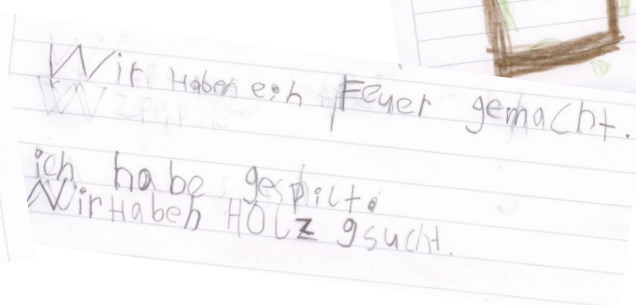 Wir Haben ein Feuer gemacht.
ich habe gespilt.
Wir Haben HOLz gsucht.